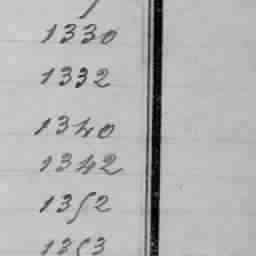 1330
1332
1340
1342
1352
1353